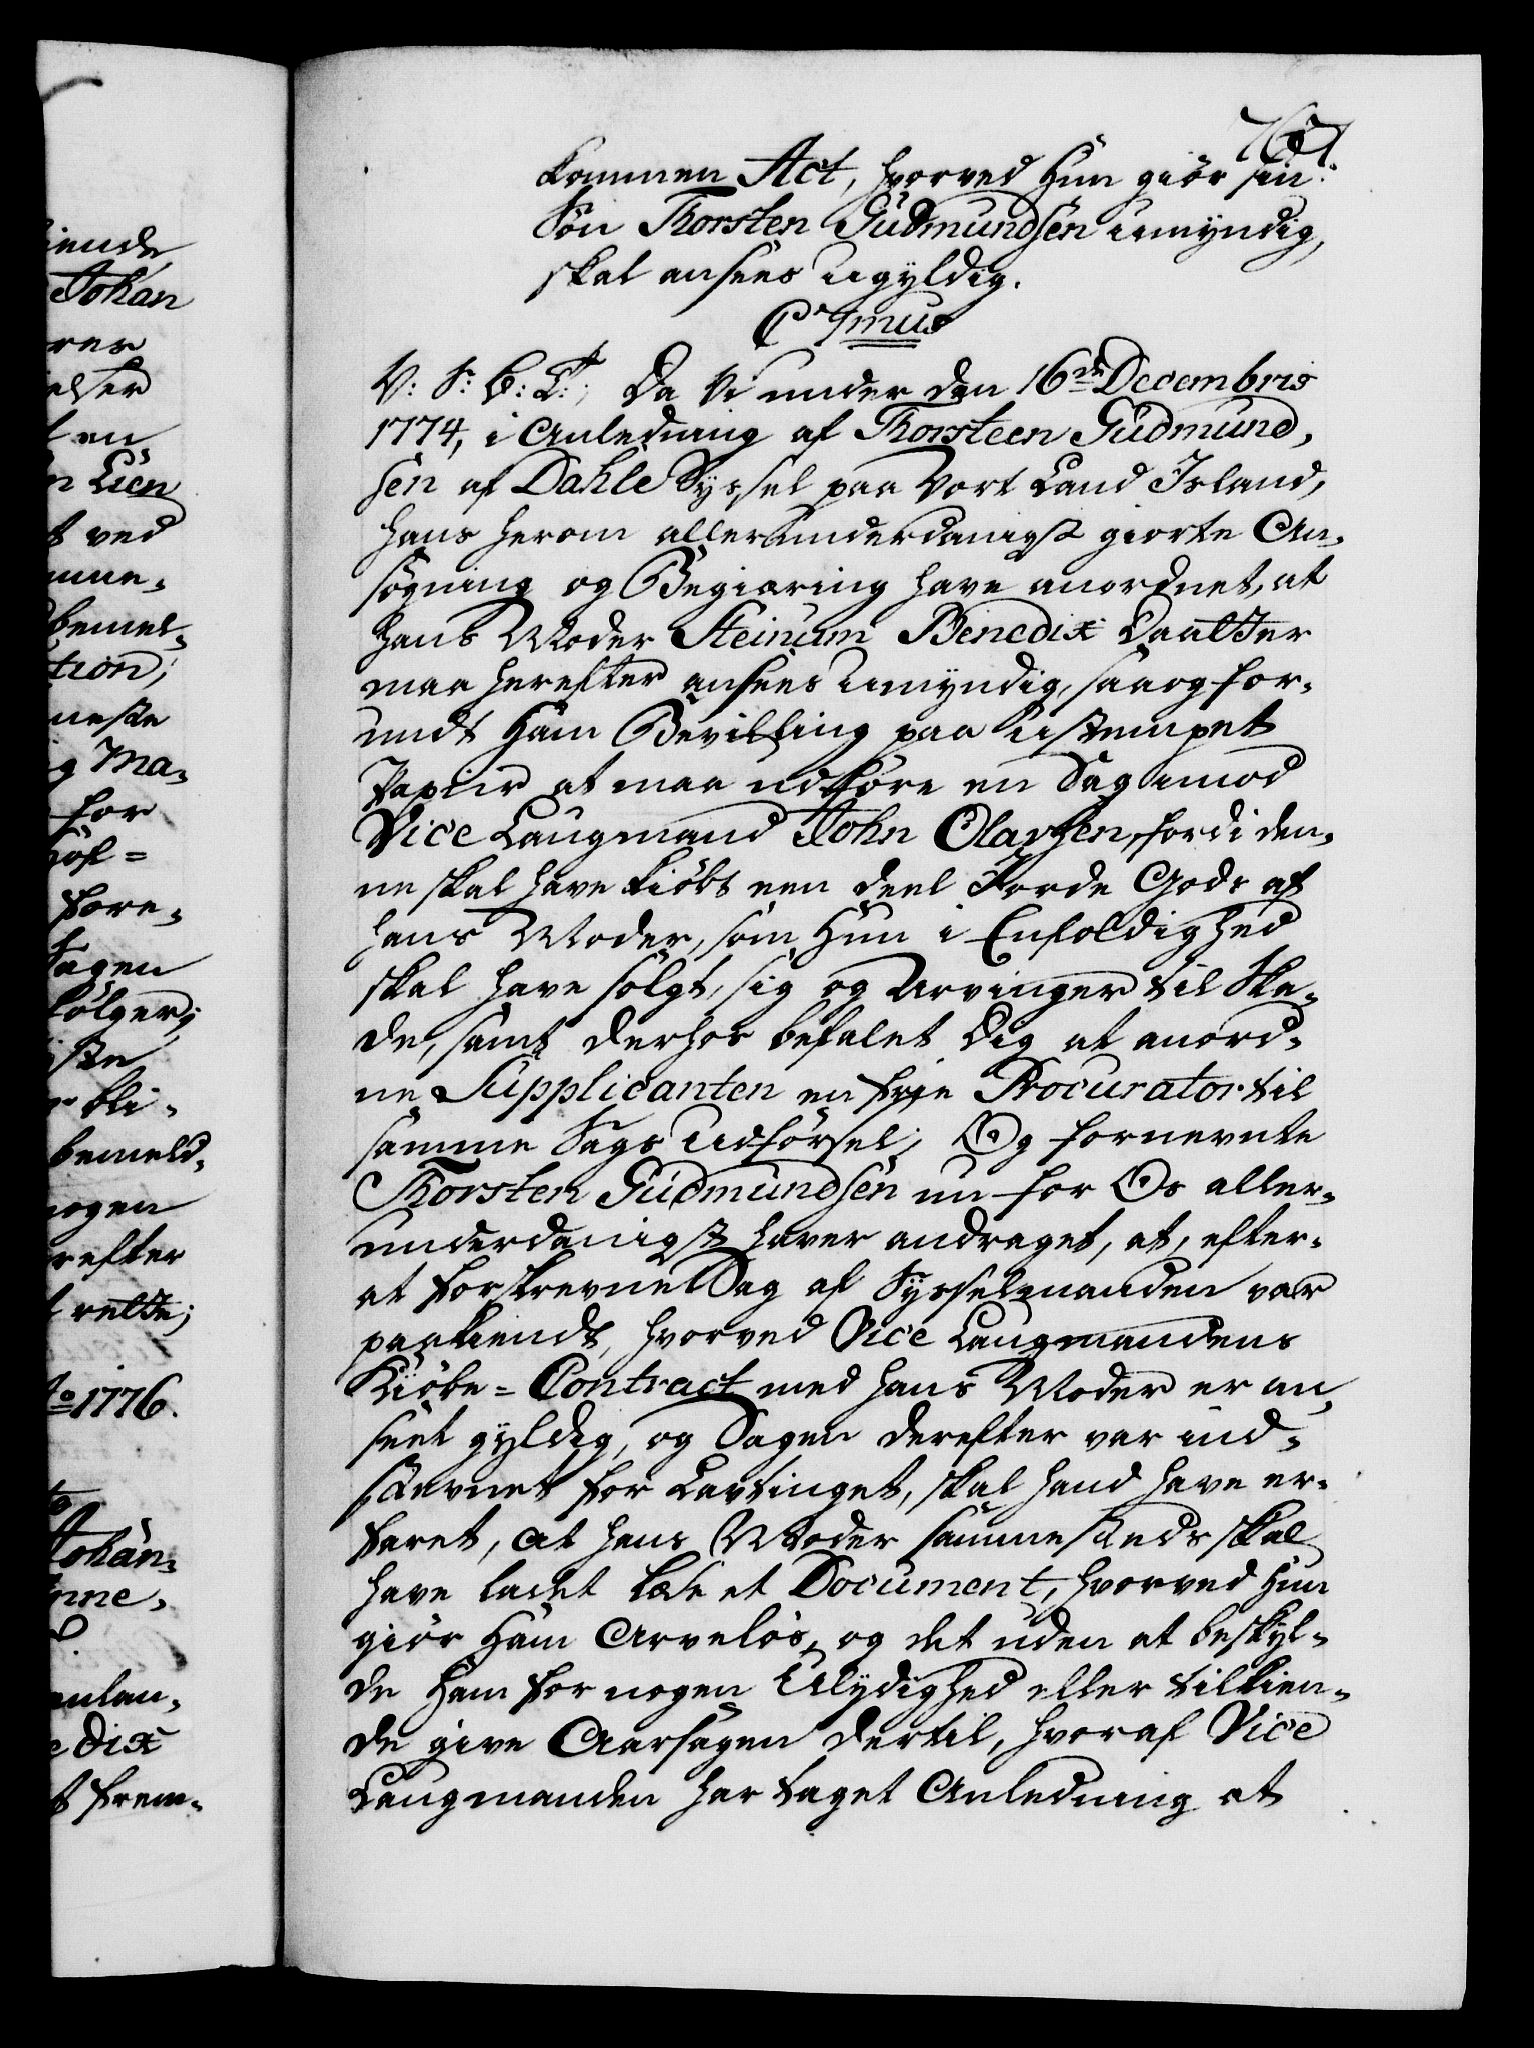 kommen Act, hvorved Hun giör sin
Sön Thorsten Gudmundsen umyndig,
skal ansees ugyldig.
C. 7mus
V: S: B: T:; Da Vi under den 16de Decembris
1774, i Anledning af Thorsteen Gudmund,
sen af Dahle Syssel paa Vort Land Island,
hans herom allerunderdanigst giorte An-
sögning og Begiæring have anordnet, at
hans Moder Steinum Benedix Daatter
maa herefter ansees umyndig, saa og for-
undt Ham Bevilling paa ustemplet
Papiir at maa udföre en Sag imod
Vice Laugmand John Olavsen, fordi den-
ne skal have kiöbt een deel Jorde Gods af
hans Moder, som Hun i Enfoldighed
skal have solgt, sig og Arvinger til Ska-
de, samt derhos befalet Dig at anord-
ne Supplicanten en frie Procurator til
samme Sags Udförsel; Og fornevnte
Thorsten Gudmundsen nu for Os aller-
underdanigst haver andraget, at, efter-
at forskrevne Sag af Sysselmanden var
paakiendt, hvorved Vice Laugmandens
Kiöbe=Contract med hans Moder er an,
seet gyldig, og Sagen derefter var ind-
stævnet for Lavtinget, skal hand have er-
faret, at hans Moder sammesteds skal
have ladet læse et Document, hvorved Hun
giör Ham Arvelös, og det uden at beskyl-
de Ham for nogen Ulydighed eller tilkien-
de give Aarsagen dertil, hvoraf Vice
Laugmanden har taget Anledning at
iende
Johan
rer
elser
en
n Lien
t ved
nne-
bemel-
tion;
neste
g Ma-
for
öf=
fore-
Sagen
ölger;
ste
bli-
bemeld-
nogen
refter
rette;
to 1776.
Johan-
nne,
anlan-
e dix
t frem-